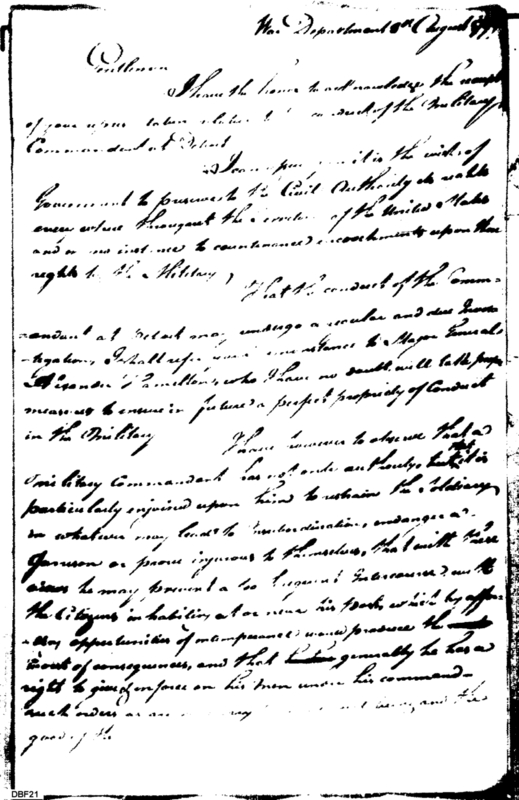 War Department 8th August
Gentlemen
I have the honor to acknowledge the receipt
of your relative to conduct of the Military
Commandant at Detroit
it is the wish of
Government to preserve to the Civil Authority its rights
every where throughout the Territory of the United States
and in no instance to countenance encroachments upon those
rights by the Military
That the conduct of the Comm-
-andant at Detroit may undergo a regular and due Inves
-tigation, I shall refer to Major General
Alexander Hamilton, who I have no doubt, will take proper
measures to ensure in future a perfect propriety of Conduct
in the Military
I have however to observe that a
Military Commandant has not only authority, but that it is
particularly enjoined upon him to restrain the Soldiery
in whatever may lead to Insubordination, endanger a
Garrison or prove injurous to themselves, that with these
views he may prevent a too frequent Intercourse with
the Citizens inhabiting at or near his Post, which by affor
-ding opportunities of intemperance would produce the
worst of consequences, and that generally he has a
right to give & enforce on his men under his command
such orders as and the
good of the
DBF21